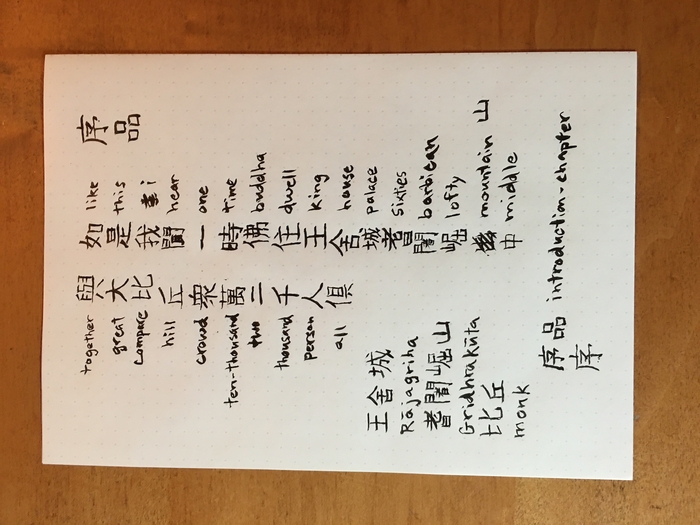 序品
如是我聞一時佛住王舍城耆闍崛中
like
this
i
hear
one
time
buddha
dwell
king
house
palace
sixties
barbican
lofty
mountain 山
middle
與大比丘衆萬二千人俱
together
great
compare
hill
crowd
ten-thousand
two
thousand
person
all
王舍城
Rājagriha
耆闍崛山
Gridhrakūta
比丘
monk
序品 introduction-chapter
序